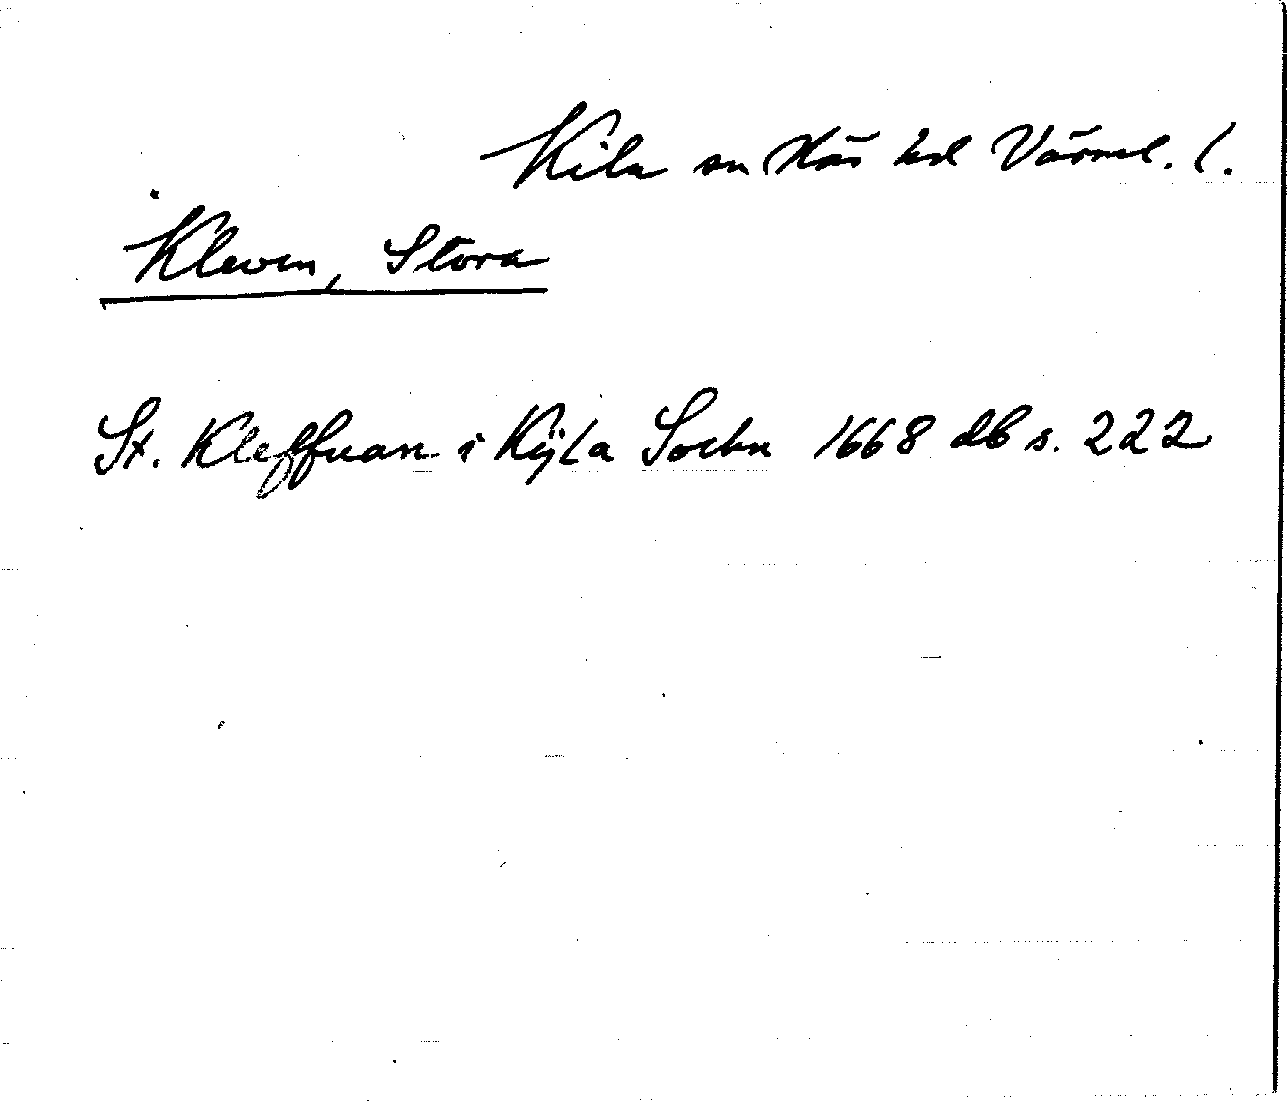 Kila sn Näs hd Värml. l.
Kleven, Stora
St. Kleffuan i Kÿla Sockn 1668 db s. 222